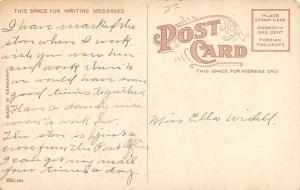 THIS SPACE FOR WRITING MESSAGES
I have marked the
store where I work
wish you were here
and work then
we would have some
good times together.
Have a dandy nice
man to work for.
The store is just a
cross from the Post Office
I can get my mail
four times a day.
MADE IN GERMANY
POST CARD
THIS SPACE FOR ADDRESS ONLY
PLACE
STAMP HERE
DOMESTIC
ONE CENT
FOREIGN
TWO CENTS
Miss Ella